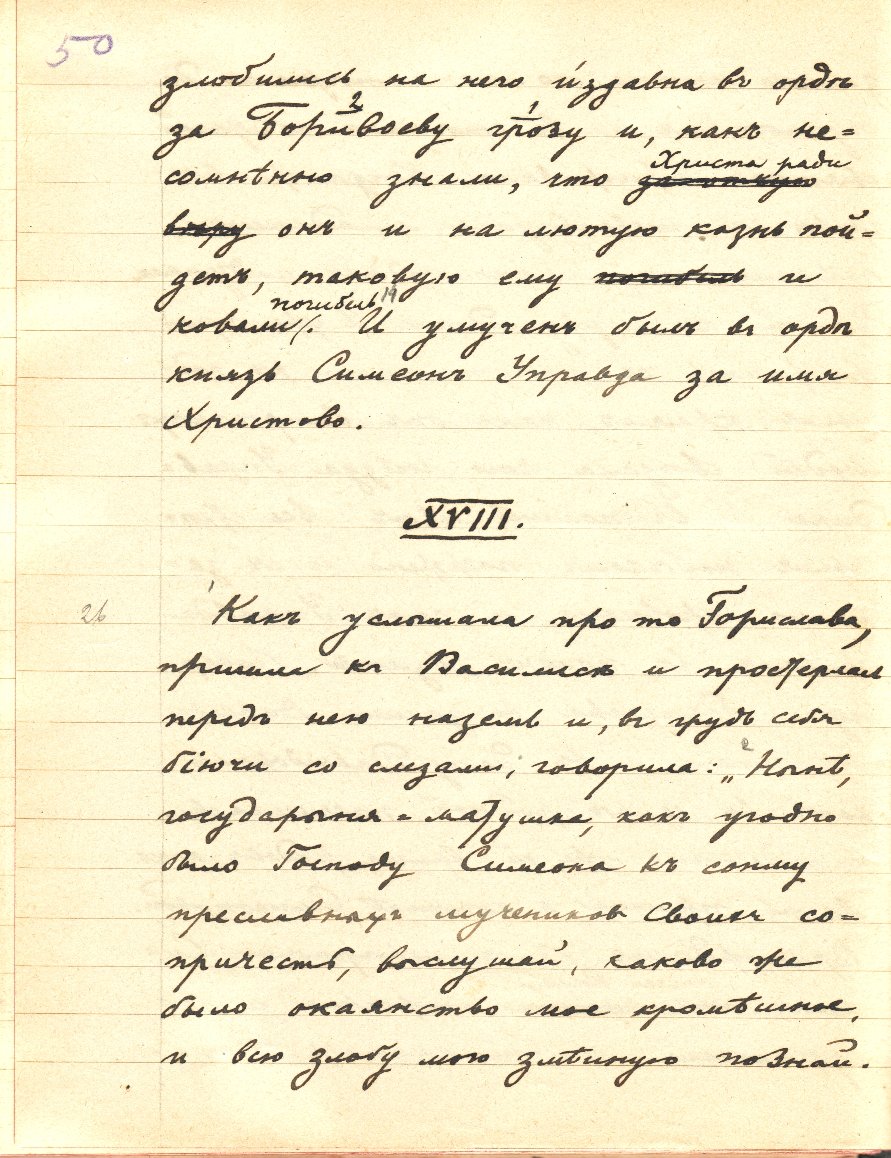 50
злобились на него издавна въ ордѣ
за Боривоеву грозу и, какъ не=
Христа ради
сомнѣнно знали, что за отчую
вѣру онъ и на лютую казнь пой=
детъ, таковую ему погибель и
погибель 19
ковали. И умученъ былъ въ ордѣ
князь Симеонъ Управда за имя
Христово.
XVIII.
26 Какъ услышала про то Горислава,
пришла къ Василискѣ и простерлась
передъ нею наземь и, въ грудь себя
бiючи со слезами, говорила: „Нынѣ,
государыня=матушка, какъ угодно
было Господу Симеона къ сонму
преславныхъ мучениковъ Своихъ со=
причесть, выслушай, каково же
было окаянство мое кромѣшное,
и всю злобу мою змѣиную познай.